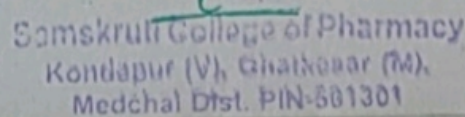 Samskruti College of Pharmacy
Kondapur (V), Ghatkesar (M),
Medchal Dist. PIN-501301